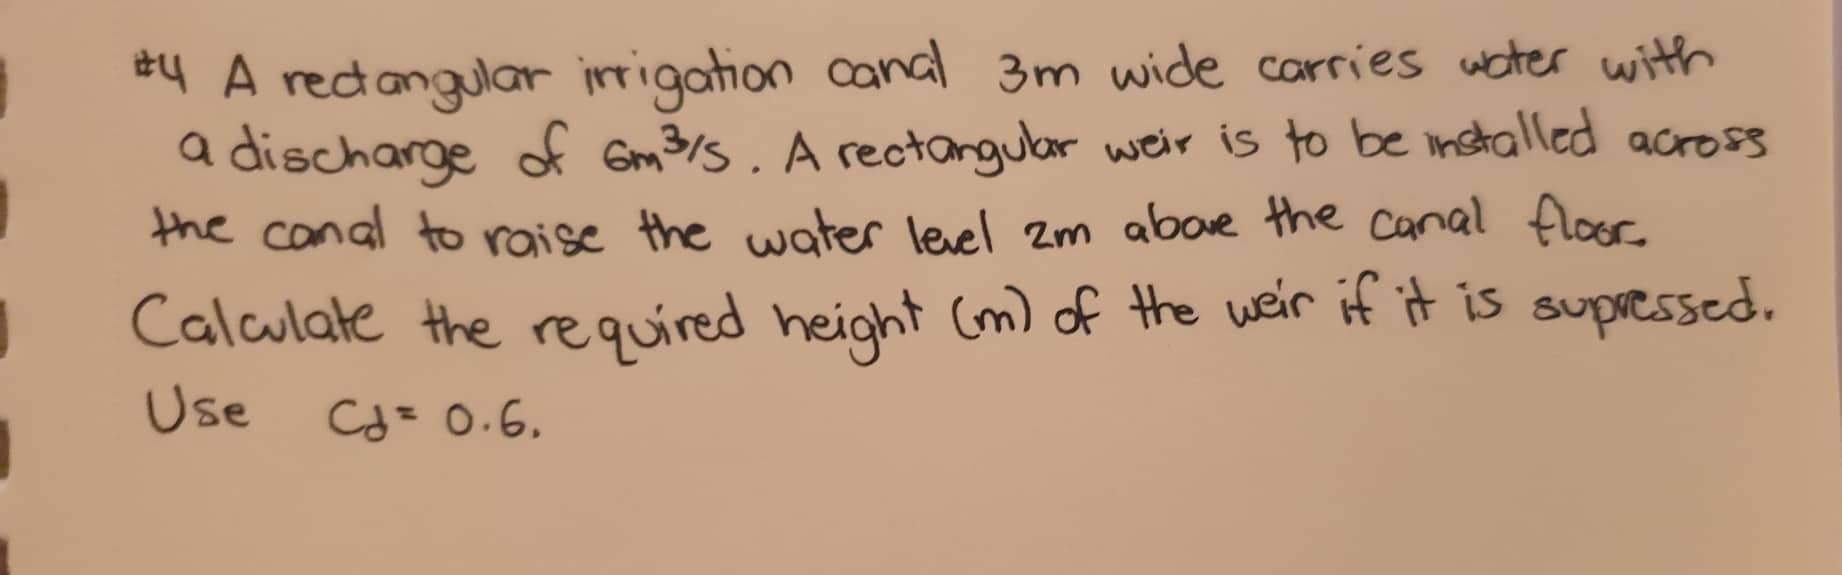 #4 A rectangular irrigation canal 3m wide carries water with
a discharge of 6m³/s. A rectangular weir is to be installed across
the canal to raise the water level 2m above the canal floor.
Calculate the required height (m) of the weir if it is supressed.
Use Cd = 0.6.